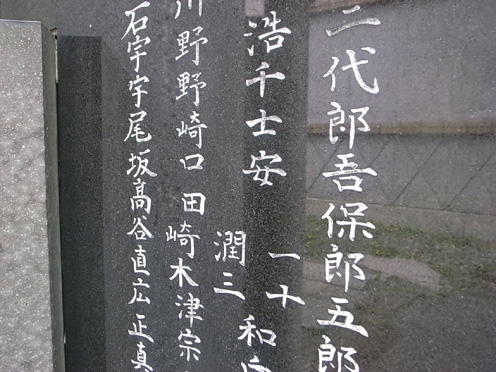 石川
宇野浩二
宇野千代
尾崎士郎
坂口安吾
高田保
谷崎潤一郎
直木三十五
広津和郎
正宗
真